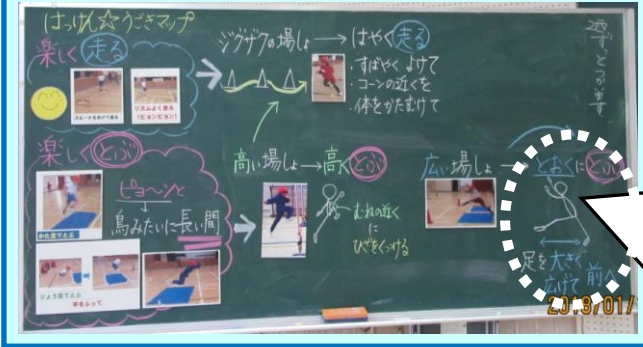 はっけん☆うごきマップ
楽しく走る
スピードを向けて走る
リズムよく走る
(ピョンピョン)
ジグザグの場しょ→はやく走る
・すばやく よけて
・コーンの近くを
・体をかたむけて
楽しくとぶ
ピョーンと
鳥みたいに長い間
かた足でとぶ
りょう足でとぶ
手をふって
高い場しょ→高くとぶ
むねの近く
に
ひざをくっつける
広い場しょ→とおくにとぶ
足を大きく
広げて 前へ
2018/01/